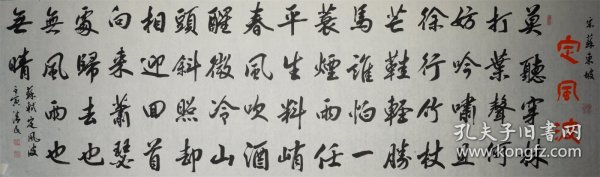 宋蘇東坡
定風波
莫聽穿林
打葉聲何
妨吟嘯且
徐行竹杖
芒鞋輕勝
馬誰怕一
蓑煙雨任
平生料峭
春風吹酒
醒微冷山
頭斜照却
相迎回首
向来蕭瑟
處歸去也
無風雨也
無晴
蘇軾定風波
壬寅
孔夫子旧书网
www.kongfz.com